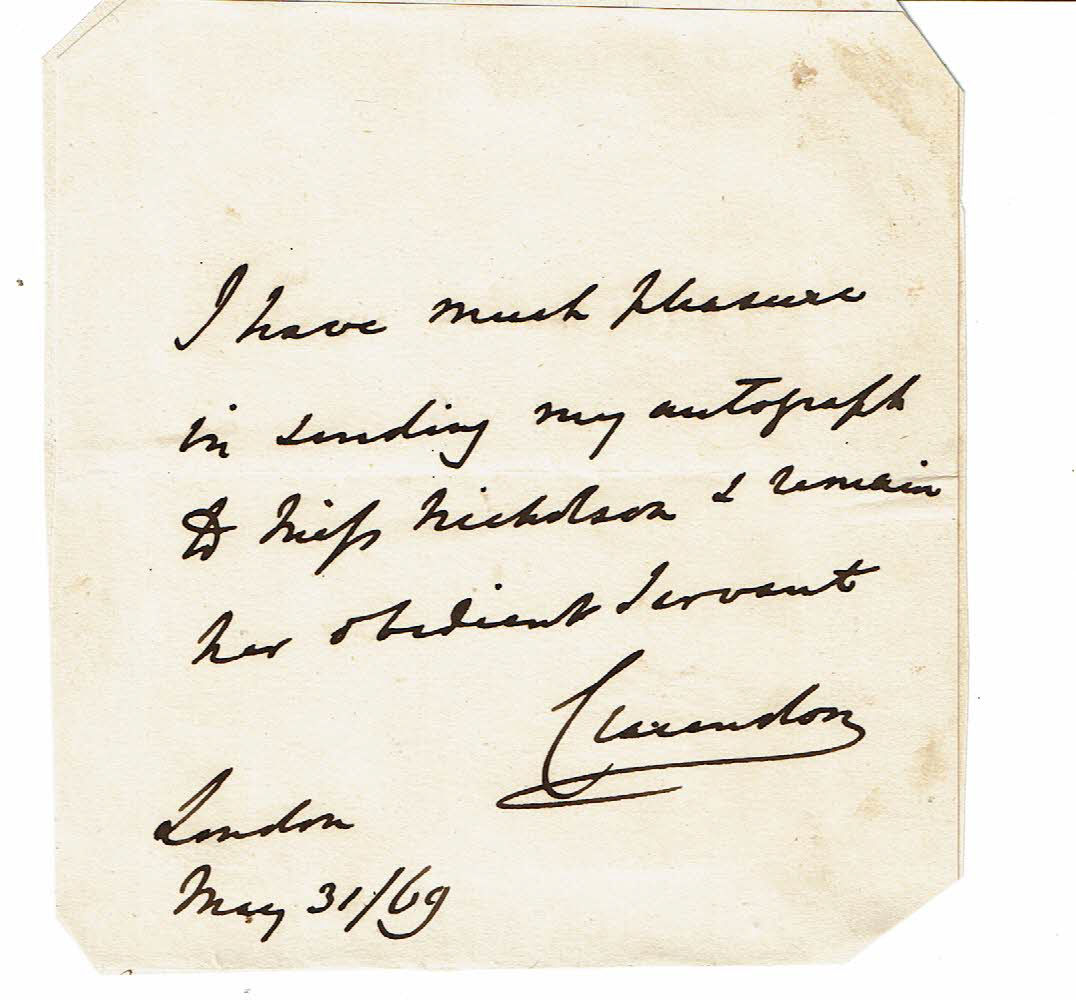 I have much pleasure
in sending my autograph
to Miss Nicholson & remain
her obedient Servant
Clarendon
London
May 31/69